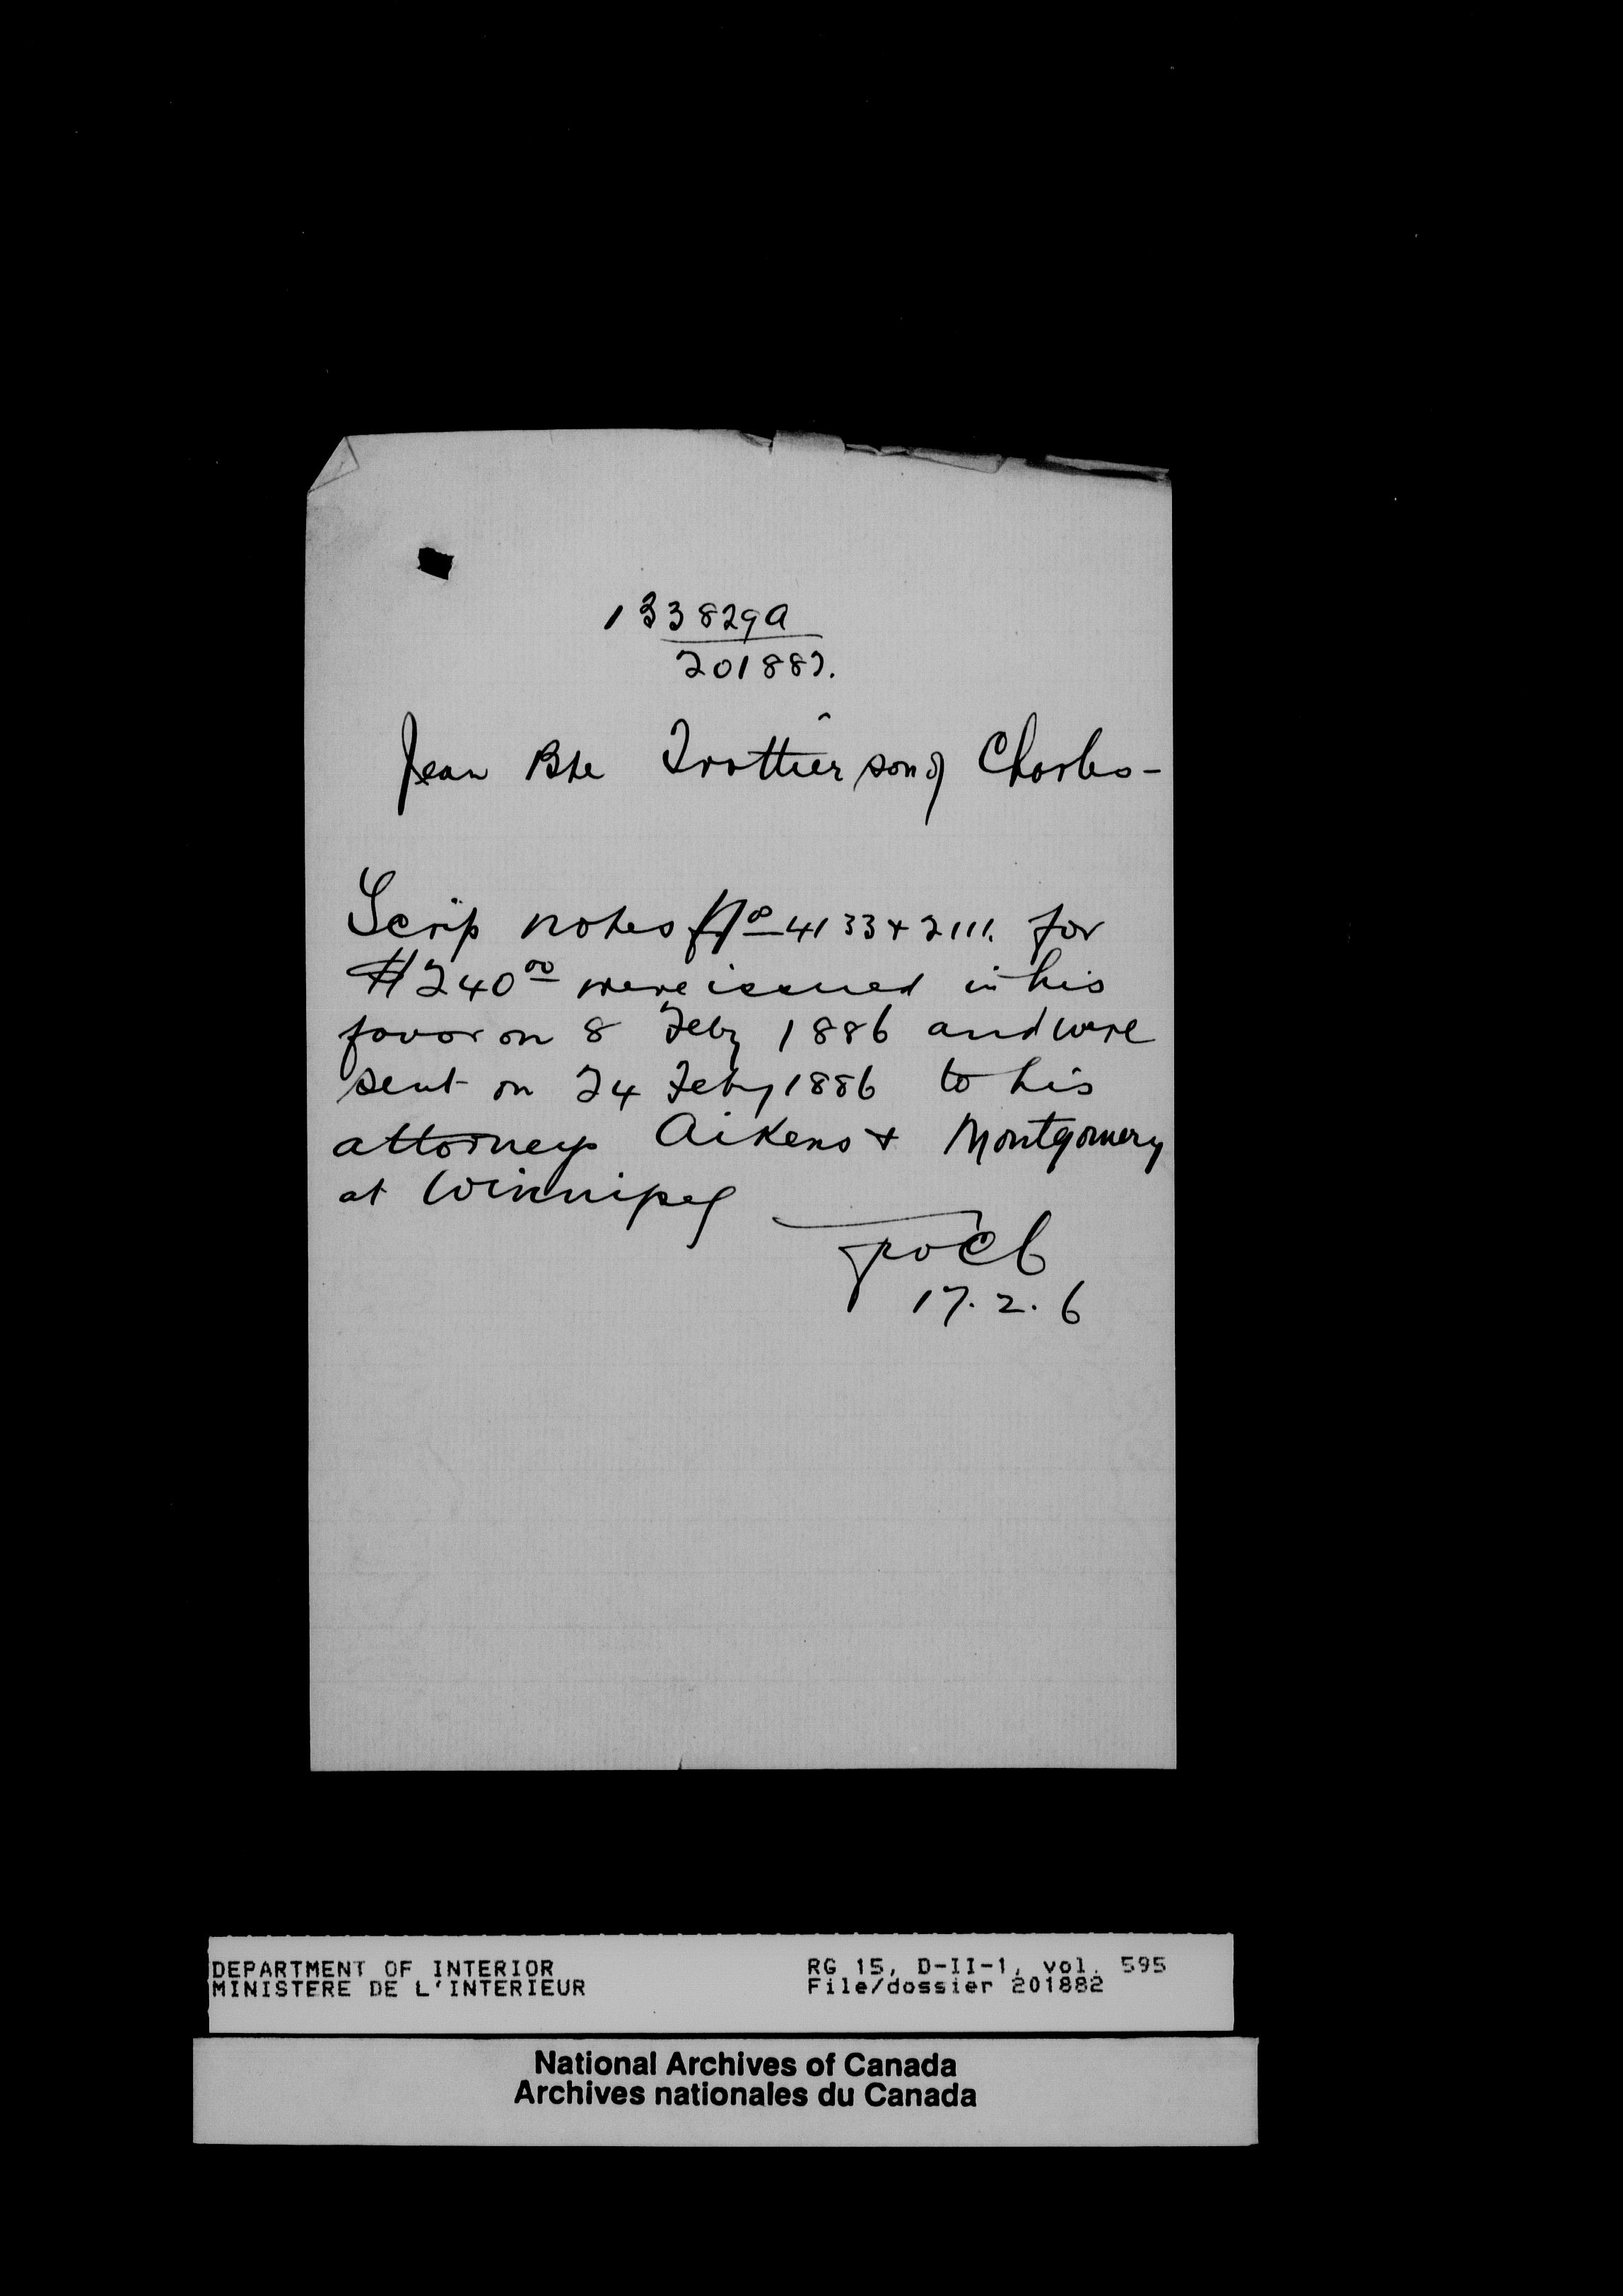 133829A
201882.
Jean Bte Trottier son of Charles -
Scrip notes No 4133 + 2111. for
$240 00 were issued in his
favor on 8 Feby 1886 and were
sent on 24 Feby 1886 to his
attorneys Aikens + Montgomery
at Winnipeg
17. 2. 6
DEPARTMENT OF INTERIOR
MINISTERE DE L'INTERIEUR
RG 15, D-II-1, vol. 595
File/dossier 201882
National Archives of Canada
Archives nationales du Canada